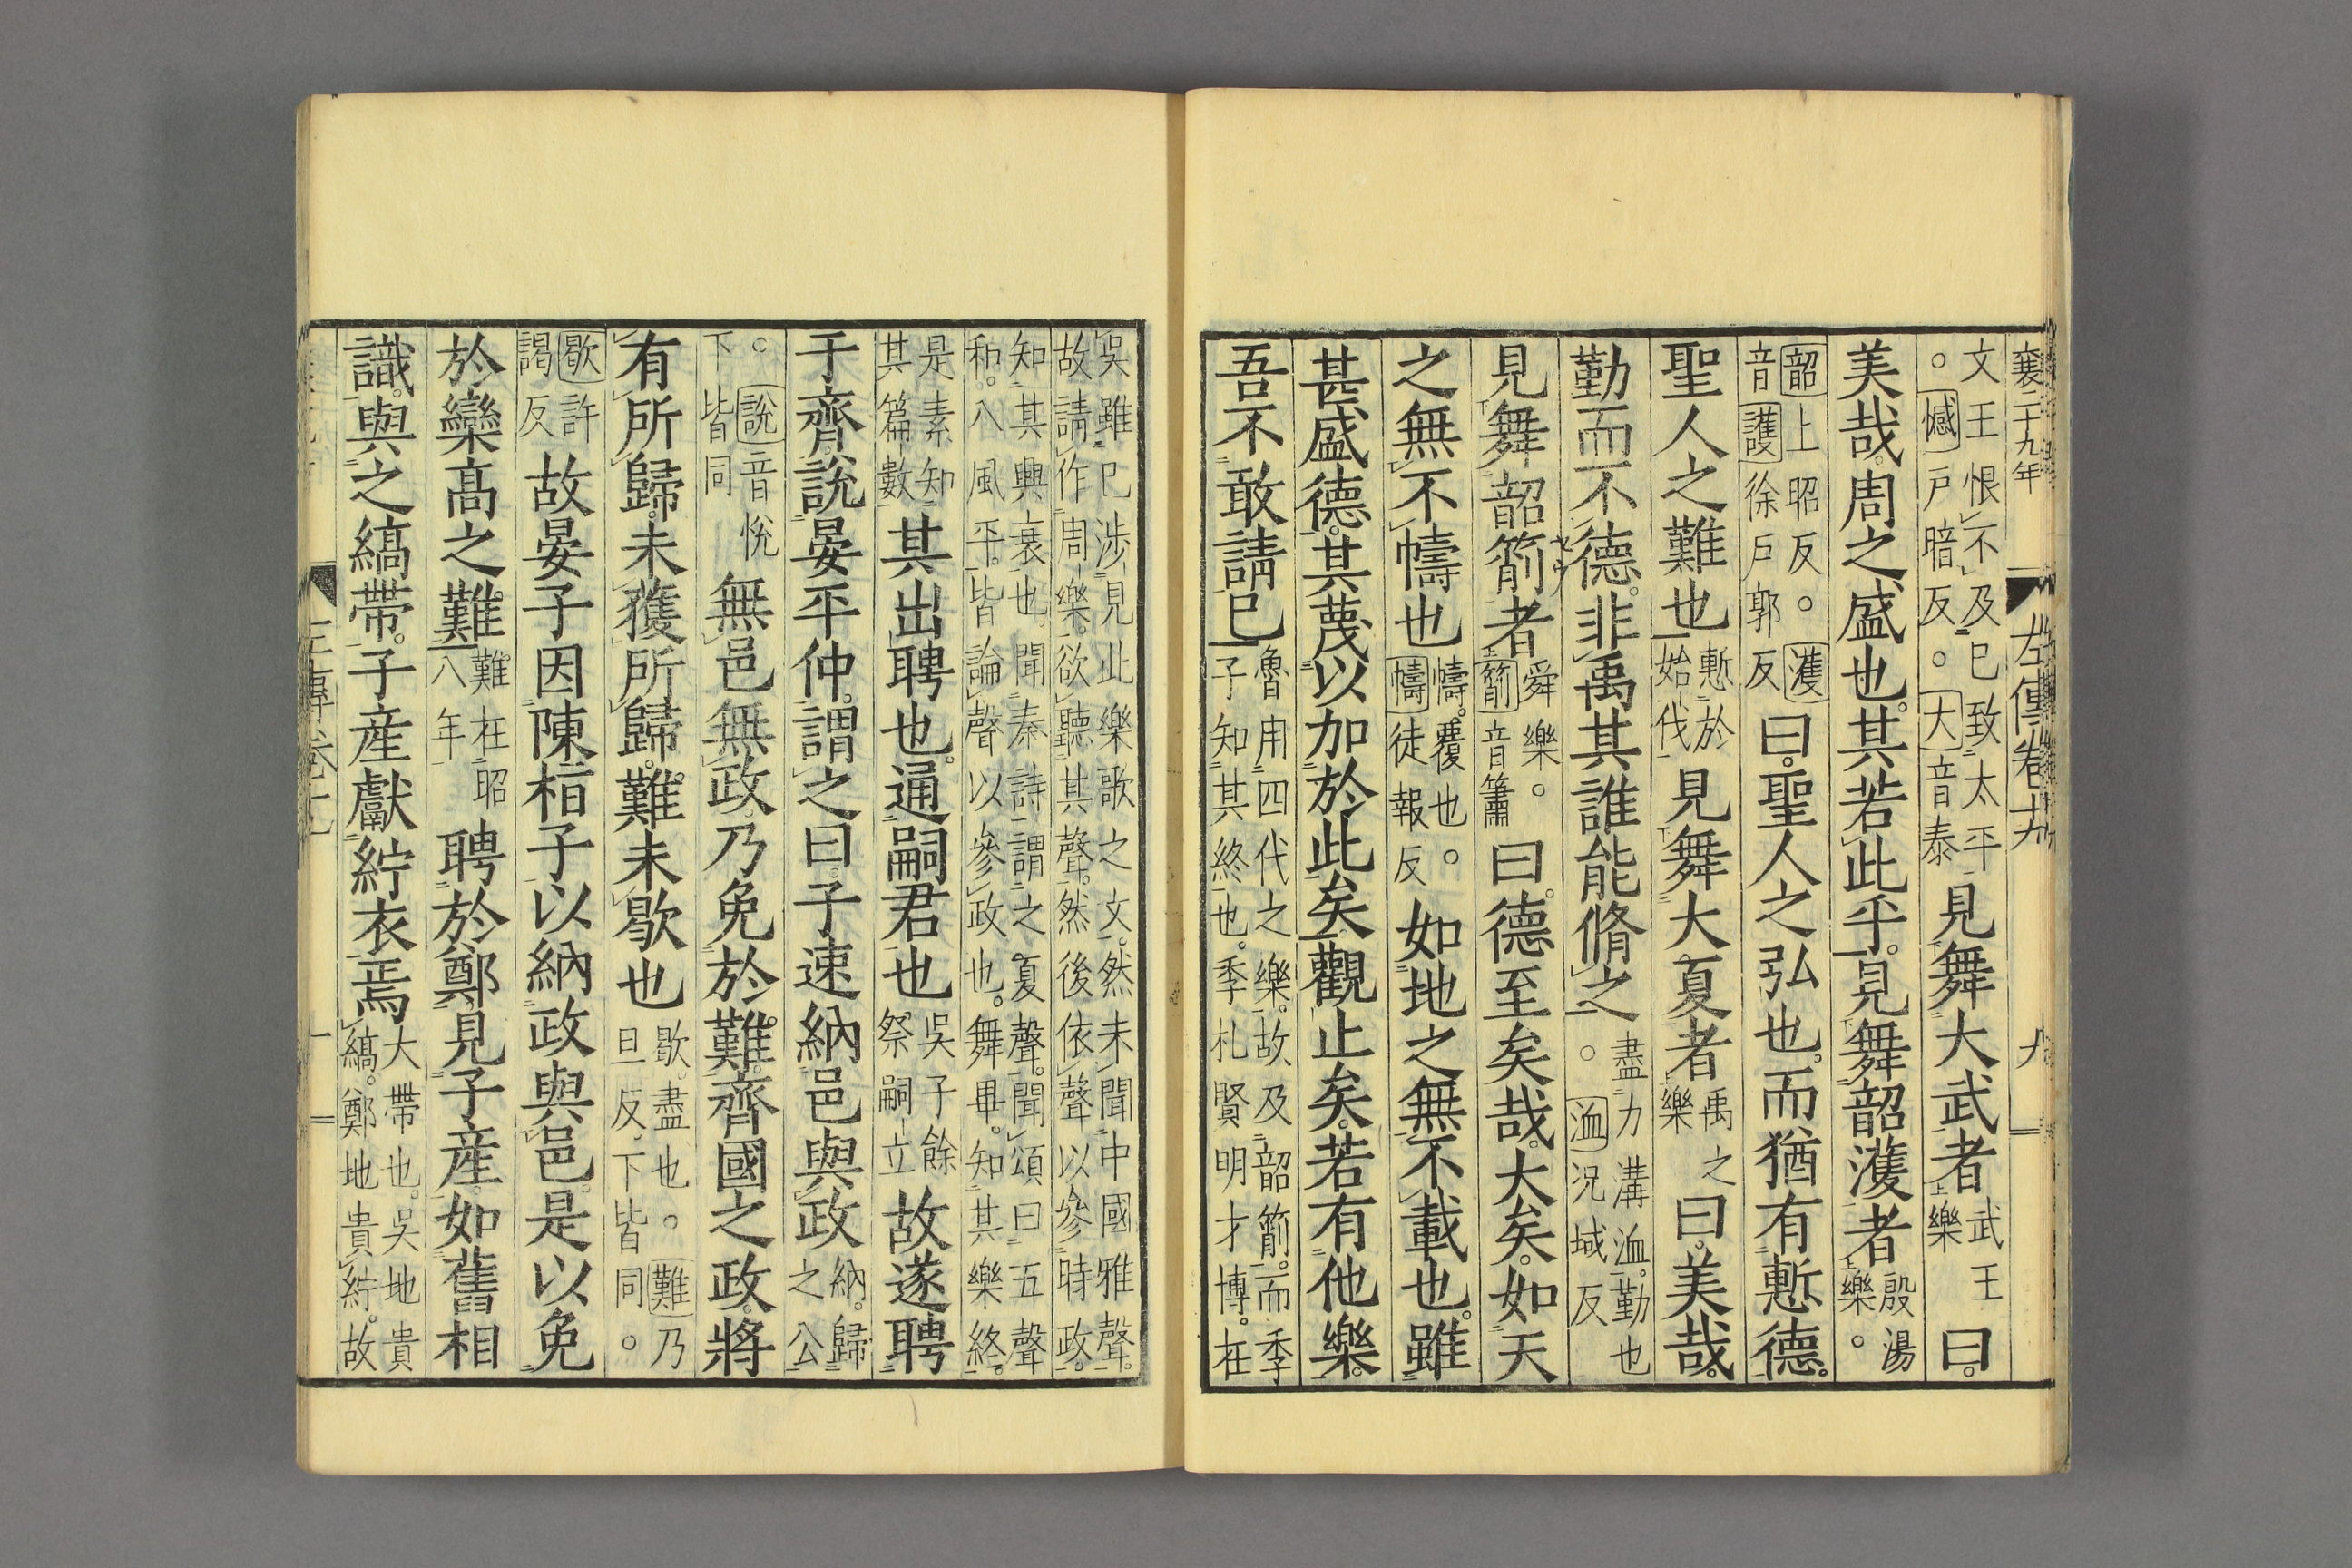 襄二十九年
左傳卷十九
九
文王恨不及己致太平
。憾戸暗反。大音泰
見舞大武者
武王
樂
曰。
美哉。周之盛也。其若此乎。見舞韶濩者
殷湯
樂。
韶上昭反。濩
音護徐戸郭反
曰。聖人之弘也。而猶有慙德。
聖人之難也
慙於
始伐
見舞大夏者
禹之
樂
曰。美哉。
勤而不德。非禹其誰能脩之
盡力溝洫。勤也
。洫況域反
見舞韶箾者
舜樂。
箾音簫
曰。德至矣哉。大矣。如天
之無不幬也
幬。覆也。
幬徒報反
如地之無不載也。雖
甚盛德。其蔑以加於此矣。觀止矣。若有他樂。
吾不敢請已
魯用四代之樂。故及韶箾。而季
子知其終也。季札賢明才博。在
吳雖已涉見此樂歌之文。然未聞中國雅聲。
故請作周樂。欲聽其聲。然後依聲以參時政。
知其興衰也。聞秦詩謂之夏聲。聞頌曰五聲
和。八風平。皆論聲以參政也。舞畢。知其樂終。
是素知
其篇數
其出聘也。通嗣君也
吳子餘
祭嗣立
故遂聘
于齊。說晏平仲。謂之曰。子速納邑與政
納。歸
之公
。說音悅
下皆同
無邑無政。乃免於難。齊國之政。將
有所歸。未獲所歸。難未歇也
歇。盡也。難乃
旦反。下皆同。
歇許
謁反
故晏子因陳桓子以納政與邑。是以免
於欒高之難
難在昭
八年
聘於鄭。見子産。如舊相
識。與之縞帶。子産獻紵衣焉
大帶也。吳地貴
縞。鄭地貴紵。故